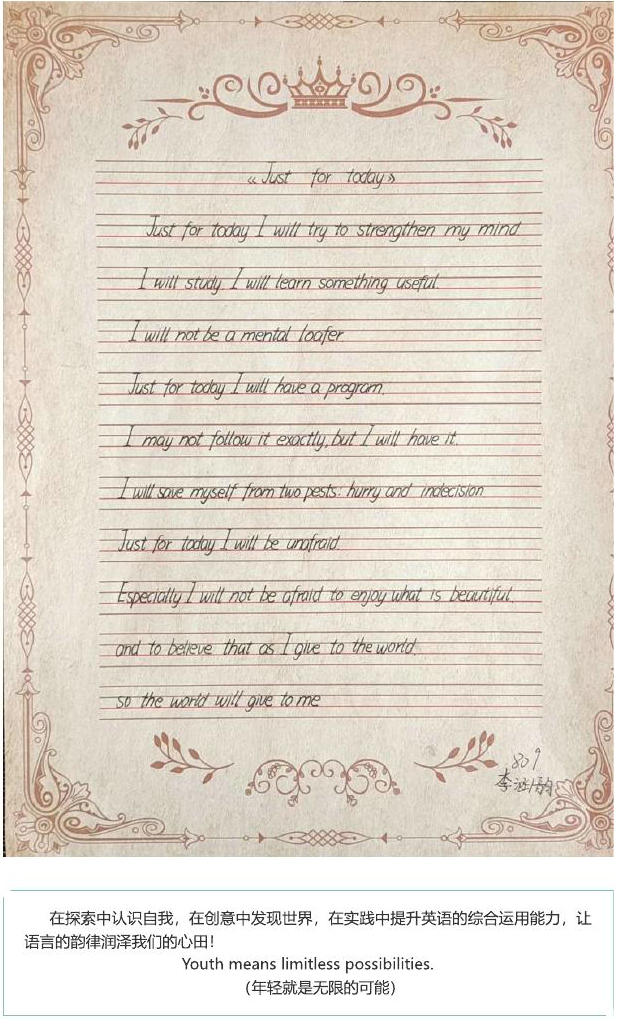 《Just for today》
Just for today I will try to strengthen my mind
I will study. I will learn something useful.
I will not be a mental loafer
Just for today I will have a program.
I may not follow it exactly, but I will have it.
I will save myself from two pests: hurry and indecision
Just for today I will be unafraid.
Especially I will not be afraid to enjoy what is beautiful.
and to believe that as I give to the world.
so the world will give to me
809
李涵韵
在探索中认识自我，在创意中发现世界，在实践中提升英语的综合运用能力，让
语言的韵律润泽我们的心田！
Youth means limitless possibilities.
（年轻就是无限的可能）